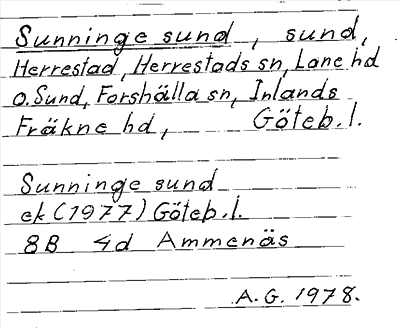 Sunninge sund, sund,
Herrestad, Herrestads sn, Lane hd
o. Sund, Forshälla sn, Inlands
Fräkne hd, Göteb. l.
Sunninge sund
ek (1977) Göteb. l.
8B 4d Ammenäs
A. G. 1978.